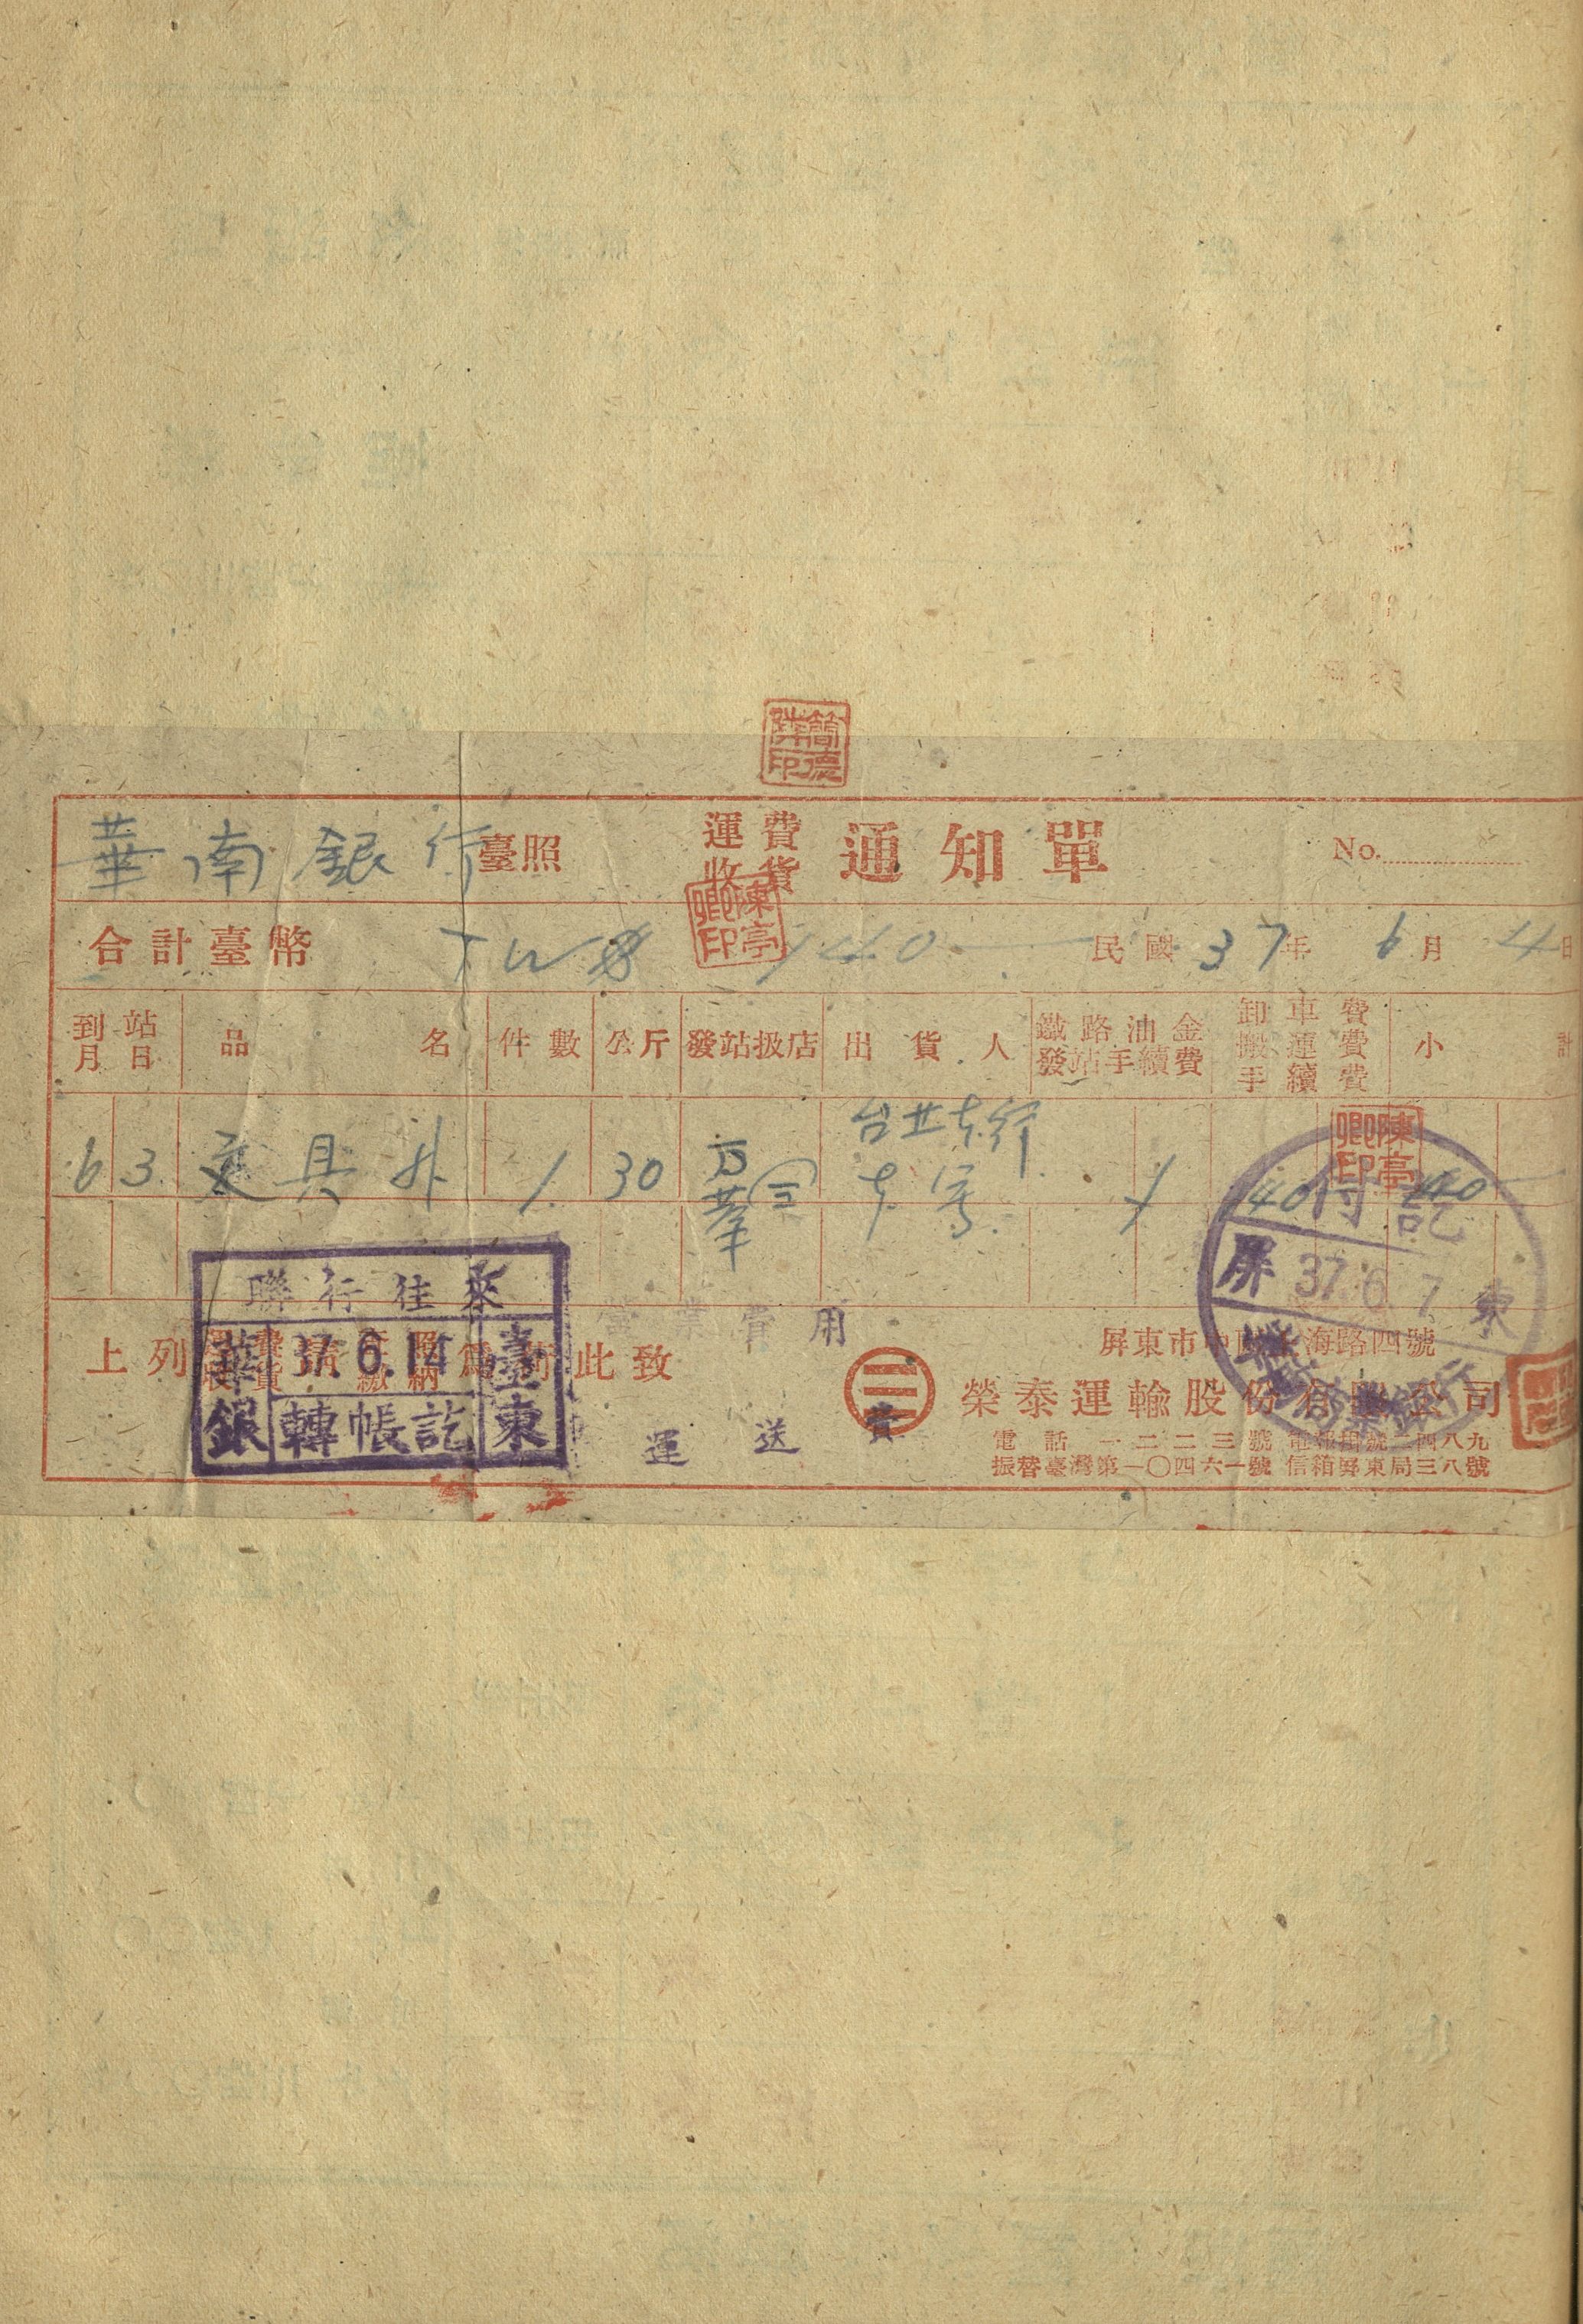 簡德
印
華南銀行臺照
運費
收貨
通知單
No.
陳亭卿印
合計臺幣 TW$ 140
民國37年6月4日
到站
月日
品名
件數
公斤
發站扱店
出貨人
鐵路油金
發站手續費
卸車費
搬運費
手續費
小計
6 3 文具外 1 30
台北本行
40 140
陳亭卿印
付訖
屏 37.6.7 東
聯行往來
華銀 37.6.14 臺東
轉帳訖
營業費用
運送費
上列 為荷此致
屏東市 海路四號
榮泰運輸股份有限公司
電話一二二三號
振替臺灣第一〇四六一號 信箱屏東局三八號